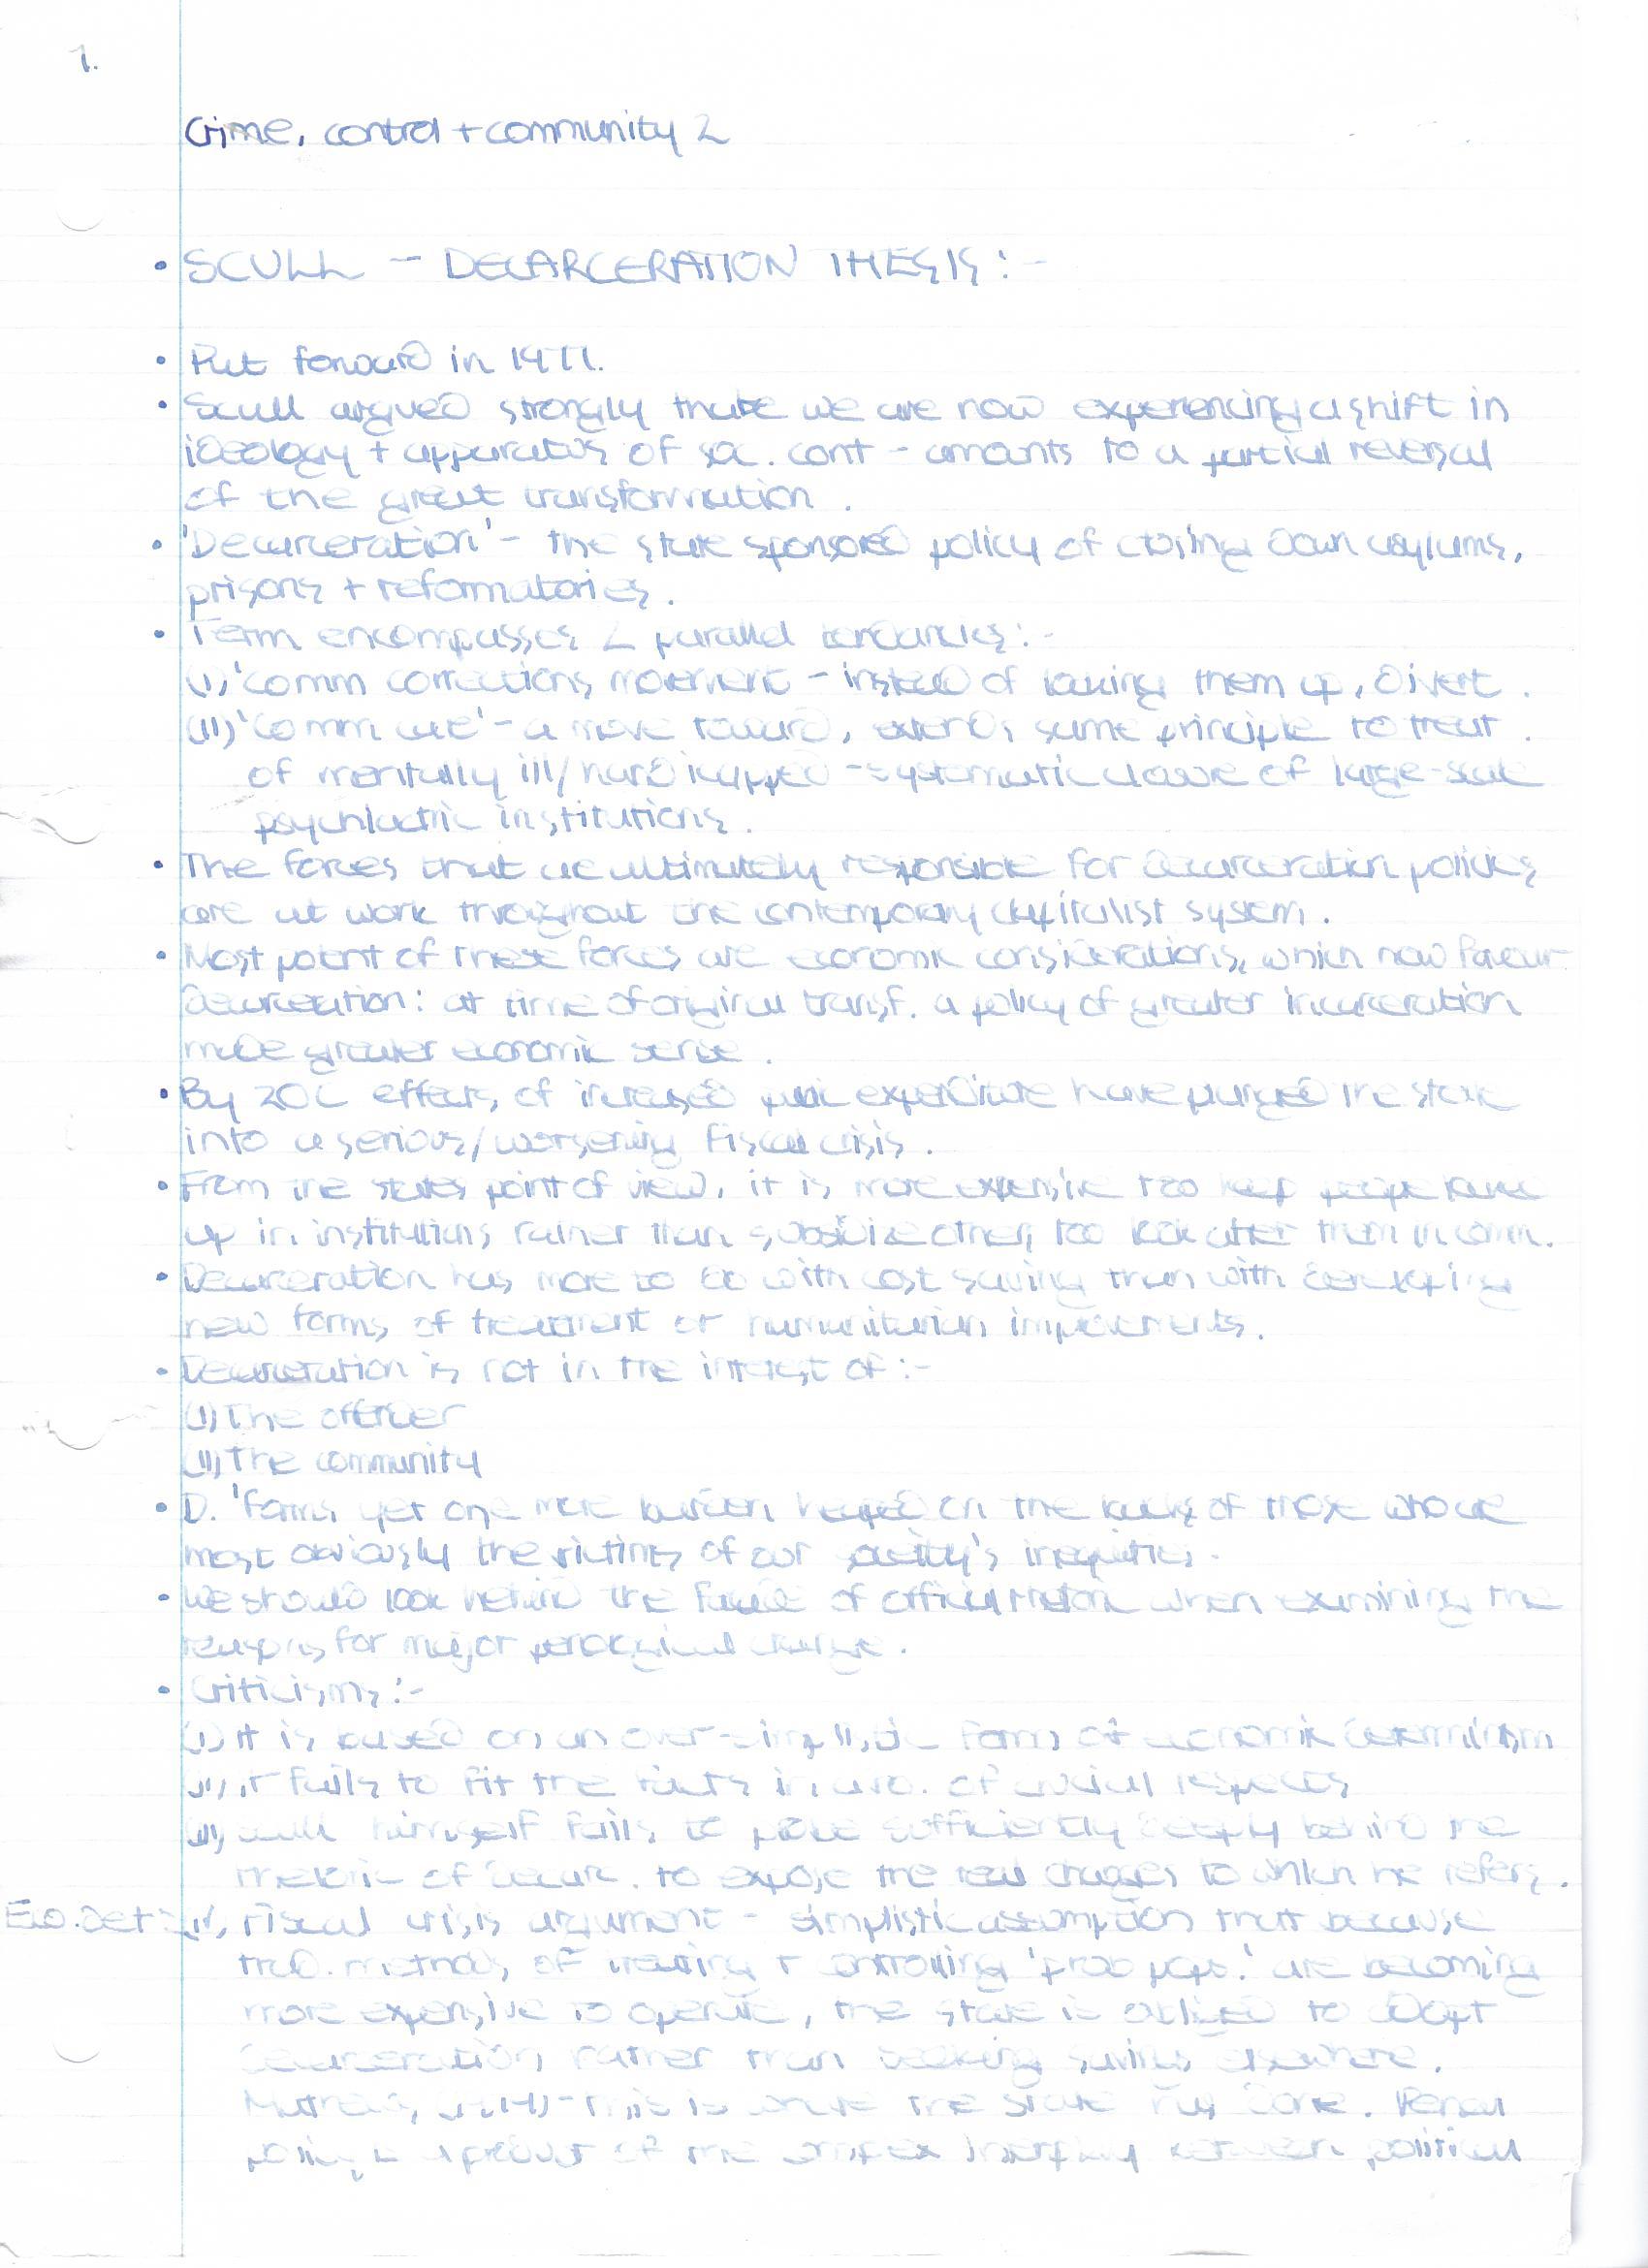 1.
Crime, control + community 2
• SCULL - DECARCERATION THESIS :-
• Put forward in 1977.
• Scull argued strongly that we are now experiencing a shift in
ideology + apparatus of soc. cont - amounts to a partial reversal
of the great transformation.
• 'Decarceration' - the state sponsored policy of closing down asylums,
prisons + reformatories.
• Term encompasses 2 parallel tendancies :-
(I) 'Comm corrections movement - instead of locking them up, divert.
(II) 'Comm care' - a move toward, extends same principle to treat.
of mentally ill/handicapped - systematic closure of large-scale
psychiatric institutions.
• The forces that are ultimately responsible for decarceration policies
are at work throughout the contemporary capitalist system.
• Most potent of these forces are economic considerations, which now favour
decarceration: at time of original transf. a policy of greater incarceration
made greater economic sense.
• By 20C effects of increased expenditure have plunged the state
into a serious/worsening fiscal crisis.
• From the states point of view, it is more expensive too keep people locked
up in institutions rather than subsidize others too look after them in comm.
• Decarceration has more to do with cost saving than with developing
new forms of treatment or humanitarian improvements.
• Decarceration is not in the interest of :-
(I) The offender
(II) The community
• D. 'forms yet one more burden heaped on the backs of those who are
most obviously the victims of our society's inequities.
• We should look behind the facade of official rhetoric when examining the
reasons for major penological change.
• Criticisms :-
(I) It is based on an over-simplistic form of economic determinism
(II) It fails to fit the facts in a no. of crucial respects
(III) Scull himself fails to probe sufficiently deeply behind the
rhetoric of decarc. to expose the real changes to which he refers.
Eco. Det :- (I) Fiscal crisis argument - simplistic assumption that because
trad. methods of treating + controlling 'prob pops.' are becoming
more expensive to operate, the state is obliged to adopt
decarceration rather than seeking savings elsewhere.
- this is what the state has done. Penal
policy is a product of the complex interplay between political